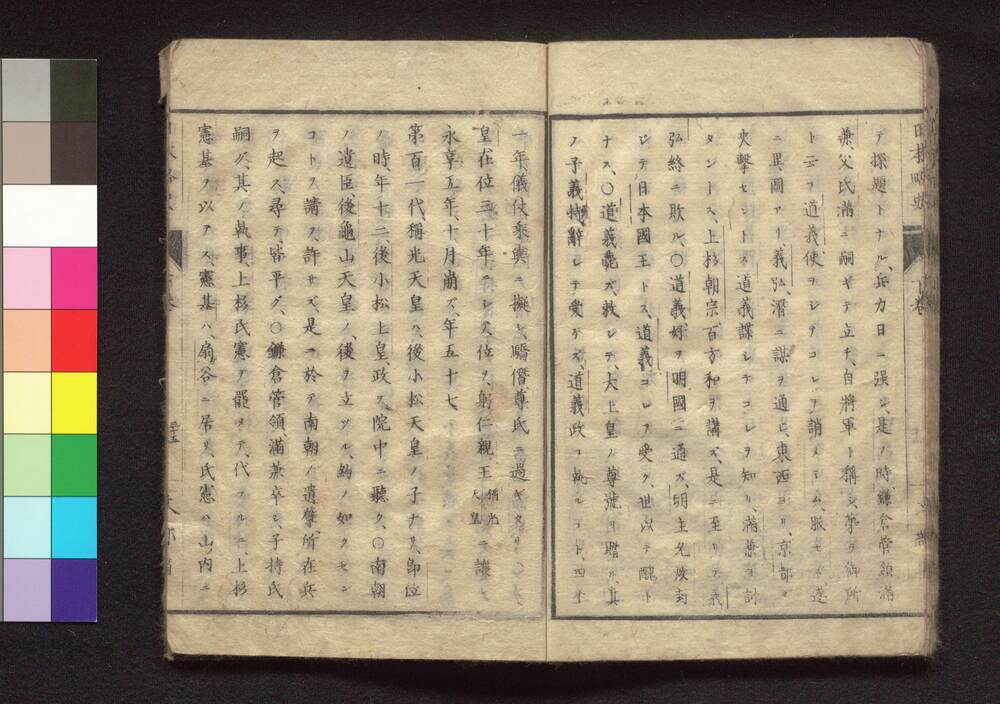 テ探題トナル、兵力日ニ強シ、是ノ時鎌倉管領滿
兼父氏滿ニ嗣ギテ立チ、自將軍ト稱シ、第ヲ御所
ト云フ、道義使ヲシテコレヲ誚メシム、服セズ、遂
ニ異圖アリ、義弘、潛ニ謀ヲ通ジ、東西ヨリ、京都ヲ
夾擊セントス、道義諜シテコレヲ知リ、滿兼ヲ討
タントス、上杉朝宗百方和ヲ講ズ、是ニ至リテ義
弘終ニ敗ル、〇道義好ヲ明國ニ通ズ、明主允炆封
シテ日本國王トス、道義コレヲ受ク、世以テ醜ト
ナス、〇道義薨ズ、敕シテ、太上皇ノ尊號ヲ贈ル、其
ノ子義持、辭シテ受ケズ、道義政ヲ執ルコト、四十
一年、儀仗乘輿ニ擬シ、驕僭尊氏ニ過ギタリ
皇在位三十年ニシテ、位ヲ、躬仁親王 稱光天皇 ニ讓ル
永享五年、十月崩ズ、年五十七、
第百一代、稱光天皇ハ、後小松天皇ノ子ナリ、卽位
ノ時、年十二、後小松上皇、政ヲ、院中ニ聽ク、〇南朝
ノ遺臣、後龜山天皇ノ、後ヲ立ツル、約ノ如クセン
コトヲ請フ、許サズ、是ニ於テ南朝ノ遺孽、所在兵
ヲ起ス、尋テ、皆平グ、〇鎌倉管領滿兼卒シ、子持氏
嗣グ、其ノ執事、上杉氏憲ヲ罷メテ、代フルニ、上杉
憲基ヲ以テス、憲基ハ、扇谷ニ居リ、氏憲ハ山內ニ